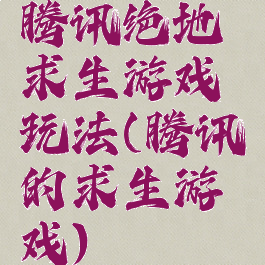 腾讯绝地
求生游戏
玩法(腾讯
的求生游
戏)